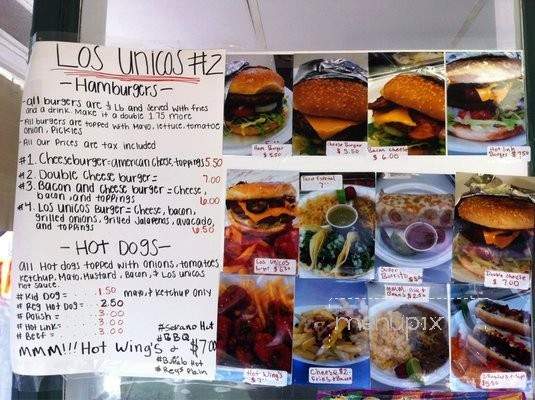 Los Unicos #2
- Hamburgers -
- all burgers are ⅓ Lb and served with fries
and a drink. Make it a double 1.75 more
- All burgers are topped with Mayo, lettuce, tomatoe
onion, pickles
- All Our Prices are tax included
#1. Cheeseburger = american cheese, toppings 5.50
#2. Double Cheese burger = 7.00
#3. Bacon and Cheese burger = Cheese,
bacon, and toppings 6.00
#4. Los Unicos Burger = Cheese, bacon,
grilled onions, grilled Jalapenos, avocado,
and toppings 6.50
- Hot Dogs -
all Hot dogs topped with onions, tomatoes
ketchup, Mayo, Mustard, Bacon, & Los Unicos
hot sauce.
# Kid Dog = 1.50 mayo & ketchup only
# Reg Hot Dog = 2.50
# Polish = 3.00
# Hot Link = 3.00
# Beef = 3.00
MMM!!! Hot Wing's $7.00
#Serano Hot
#BBQ
#Buffalo Hot
#Reg's Plain
Ham Burger
$5.50
Cheese Burger
$5.50
Bacon Cheese
$6.00
Hot Link
Burger $7.50
Los Unicos
Burger $6.50
Super
Burrito
Double Cheese
$7.00
Hot Wing's
$7.00
Cheese $2
Fries & Bacon
Beans $2.50
menupix